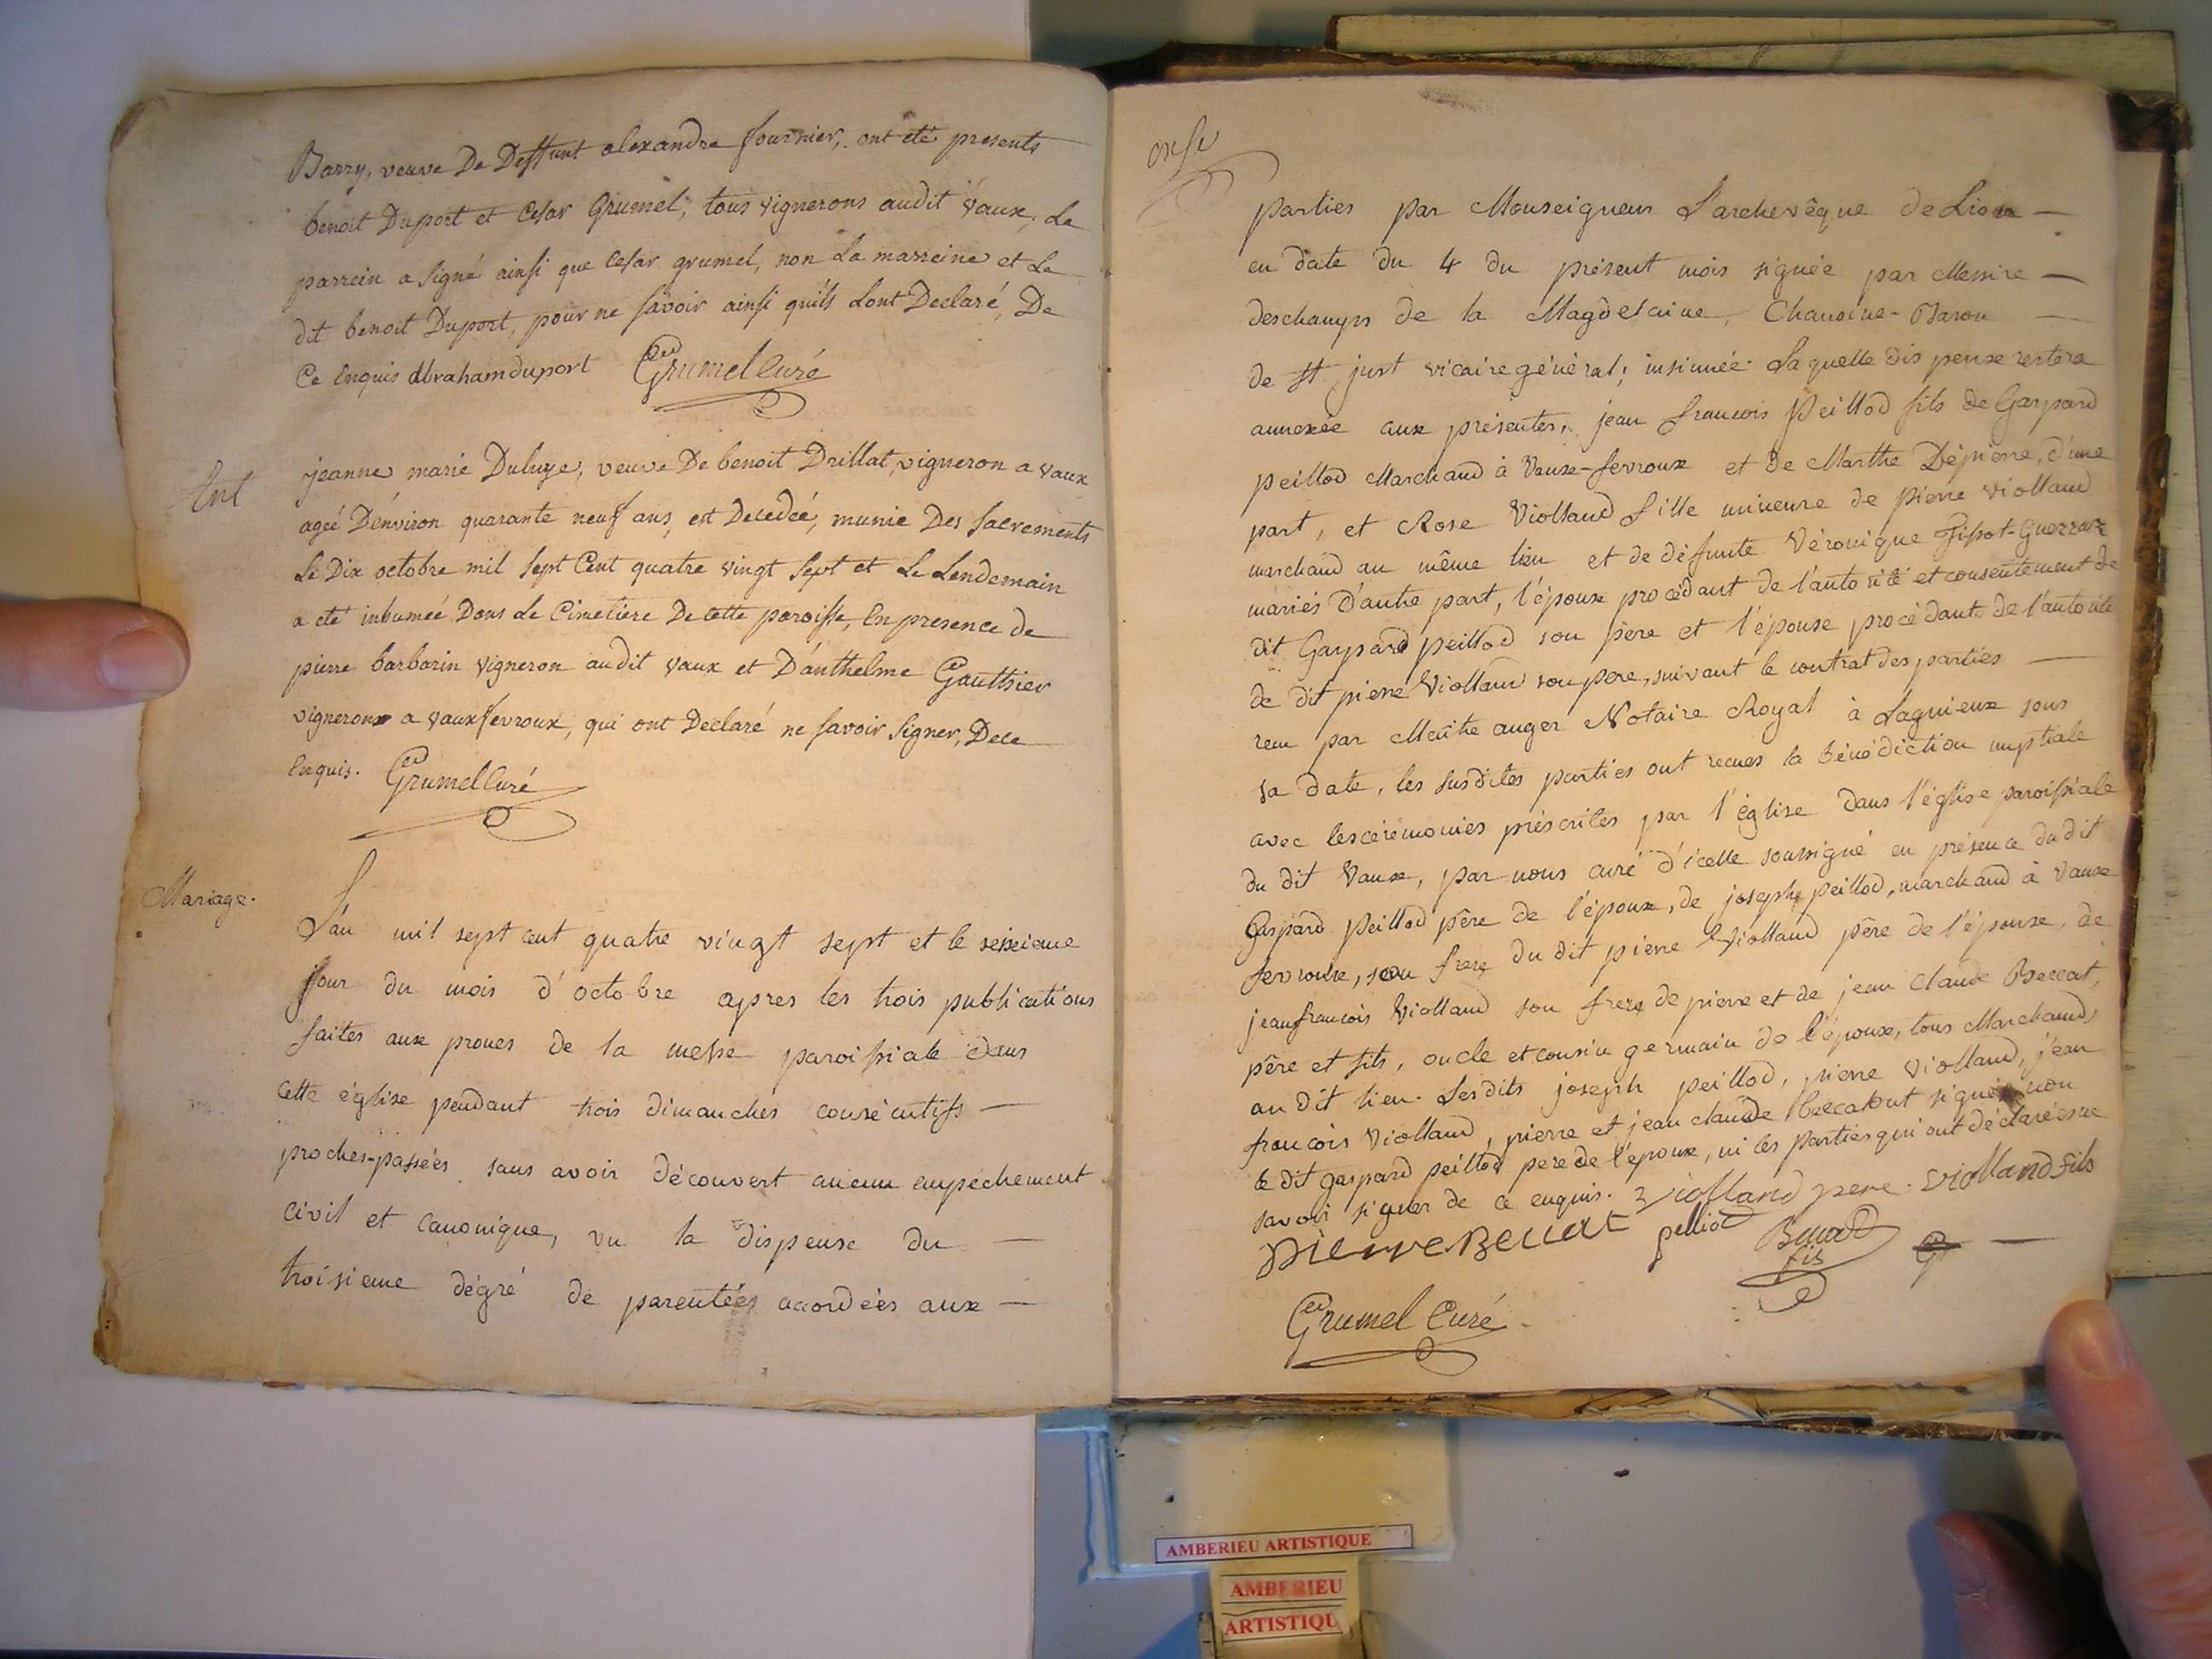 Barry, veuve De Deffunt alexandre fournier, ont eté presents
benoit Duport et Cesar Grumel, tous vignerons audit vaux, Le
parrein a signé ainsi que Cesar grumel, non La marreine et Le
dit benoit Duport, pour ne savoir ainsi quils Lont Declaré, De
Ce Enquis abraham duport Grumel Curé
Ent
jeanne marie Duluye, veuve De benoit Drillat, vigneron a vaux
ageé D'environ quarante neuf ans, est Decedeé, munie Des sacrements
Le Dix octobre mil sept Cent quatre vingt sept et Le Lendemain
a eté inhumeé Dans Le Cimetiere De cette paroisse, En presence de
pierre barbarin vigneron audit vaux et D'anthelme Gautthier
vignerons a vauxfevroux, qui ont Declaré ne savoir signer, Dece
Enquis. Grumel Curé
Mariage.
L'an mil sept cent quatre vingt sept et le seisieme
jour du mois d'octobre apres les trois publications
faites aux prones de la messe paroissiale dans
cette église pendant trois dimanches consécutifs —
proches-passées sans avoir découvert aucun empechement
civil et canonique, vu la dispense du —
troisieme dégré de parentées accordées aux —
onse
parties par Monseigneur L'archevêque de Lion —
en date du 4 du présent mois signée par Messire —
deschamps de la Magdelaine, Chanoine-Baron —
de st just vicaire général; insinuée. Laquelle dispense restera
annexée aux présentes, jean francois Peillod fils de Gaspard
peillod Marchand à Vaux-fevroux et de Marthe Dépierre, d'une
part, et Rose Viollaud fille mineure de pierre viollaud
marchand au même lieu et de défunte Véronique
mariés d'autre part, l'époux procédant de l'autorité et consentement de
dit Gaspard peillod son père et l'épouse procédante de l'autorité
de dit pierre Viollaud son père, suivant le contrat des parties —
recu par Maitre auger Notaire Royal à Lagnieux sous
sa date, les susdites parties ont recues la bénédiction nuptiale
avec les cérémonies préscrites par l'église dans l'église paroissiale
du dit Vaux, par nous curé d'icelle soussigné en présence du dit
Gaspard Peillod père de l'époux, de joseph peillod, marchand à Vaux
fevroux, son frere du dit pierre Viollaud père de l'épouse, de
jean francois Viollaud son frere de pierre et de jean Claude Beccat,
père et fils, oncle et cousin germain de l'époux, tous Marchands
au dit lieu. Lesdits joseph peillod, pierre Viollaud, jean
francois Viollaud, pierre et jean claude beccat ont signé non
le dit gaspard peillod pere de l'époux, ni les parties qui ont déclarées ne
savoir signer de ce enquis. Violland pere. Violland fils
pierre Beccat pelliod Beccat
fils
Grumel Curé
AMBERIEU ARTISTIQUE
AMBERIEU
ARTISTIQU